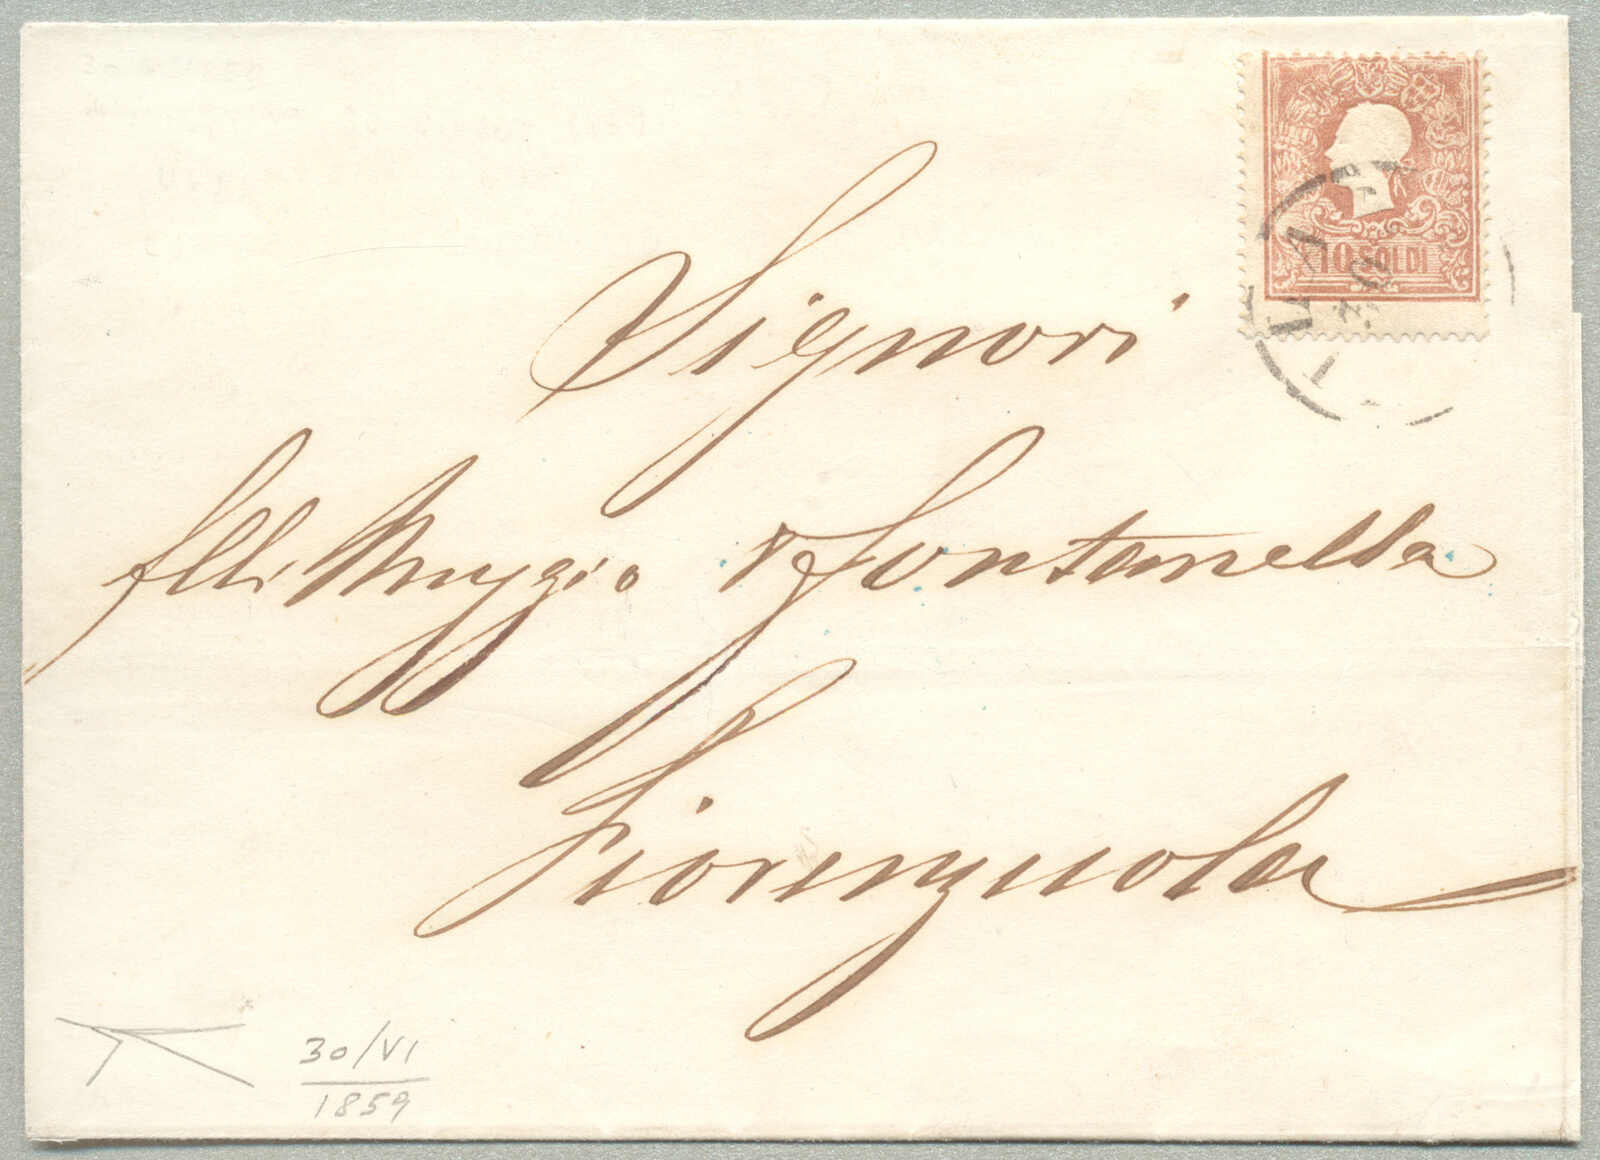 10 SOLDI
Signori
flli Muggio & Fontanella
Fiorenzuola
30/VI
1859